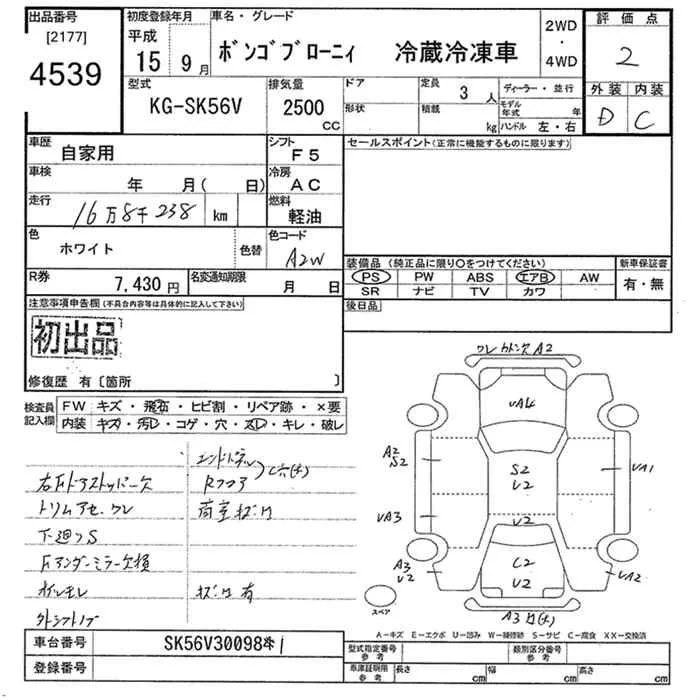 出品番号
[2177]
4539
初度登録年月
平成
15 9月
車名・グレード
ボンゴブローニィ 冷蔵冷凍車
2WD
・
4WD
評価点
2
外装 内装
D C
型式
KG-SK56V
排気量
2500
CC
ドア
形状
定員
3人
積載
kg
ディーラー・並行
モデル年式 年
ハンドル 左・右
車歴
自家用
シフト
F5
セールスポイント(正常に機能するものに限ります)
車検
年 月( 日)
冷房
AC
走行
16万8千238 km
燃料
軽油
色
ホワイト
色替
色コード
A2W
装備品(純正品に限り○をつけてください)
新車保証書
PS PW ABS エアB AW
SR ナビ TV カワ
有・無
R券
7,430円
名変通知期限
月 日
後日品
注意事項申告欄(不具合内容等は具体的に記入して下さい)
初出品
修復歴 有〔箇所 〕
検査員
記入欄
FW キズ・飛石・ヒビ割・リペア跡・×要
内装 キズ・汚レ・コゲ・穴・スレ・キレ・破レ
エンドパネル
右Fドアストッパー欠
Rフロア
トリムアセ、ワレ
荷室サビ
下廻りS
Fアンダーミラー欠損
オイルモレ
サビ有
A2
VA4
A2
S2
S2
V2
VA1
VA3
V2
A3
V2
C2
V2
VA2
スペア
A3
A-キズ E-エクボ U-凹み W-補修跡 S-サビ C-腐食 XX-交換済
車台番号
SK56V300984
登録番号
型式指定番号
参考
類別区分番号
参考
車庫証明用
参考
長さ cm
幅 cm
高さ cm